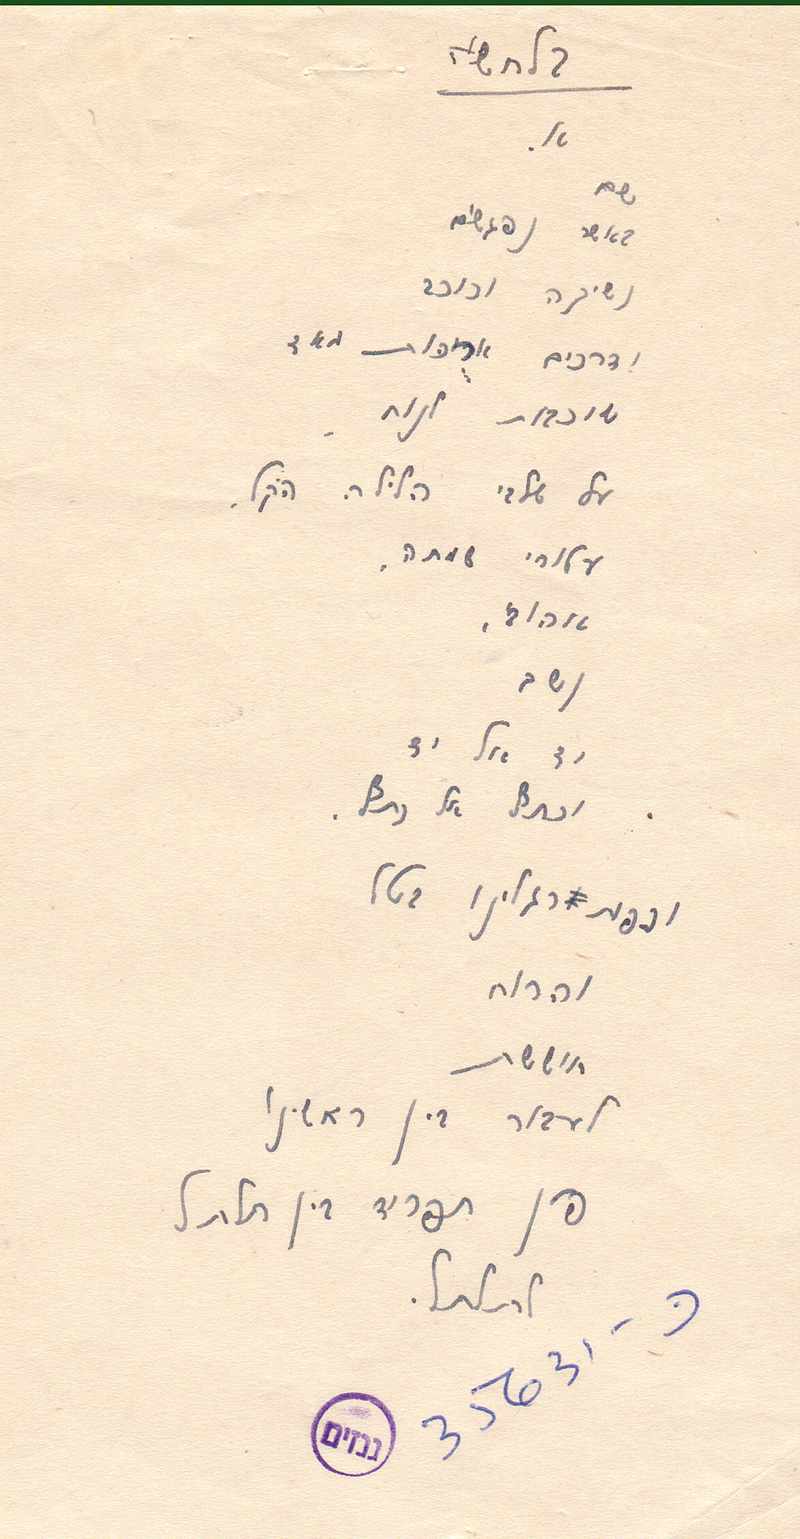 בלחש׳ה
א.
שם
באשר נפגשים
נשיקה וכוכב
ודרכים ארוכות מאד
שוכבות לנוח
על שלבי הלילה הקל.
עטורי שמחה,
אהובי,
נשב
יד אל יד
וכתף אל כתף.
וכפות רגלינו בטל
והרוח
חוששת
לעבור בין ראשינו
פן תפריד בין תלתל
לתלתל.
ה - 35631
גנזים